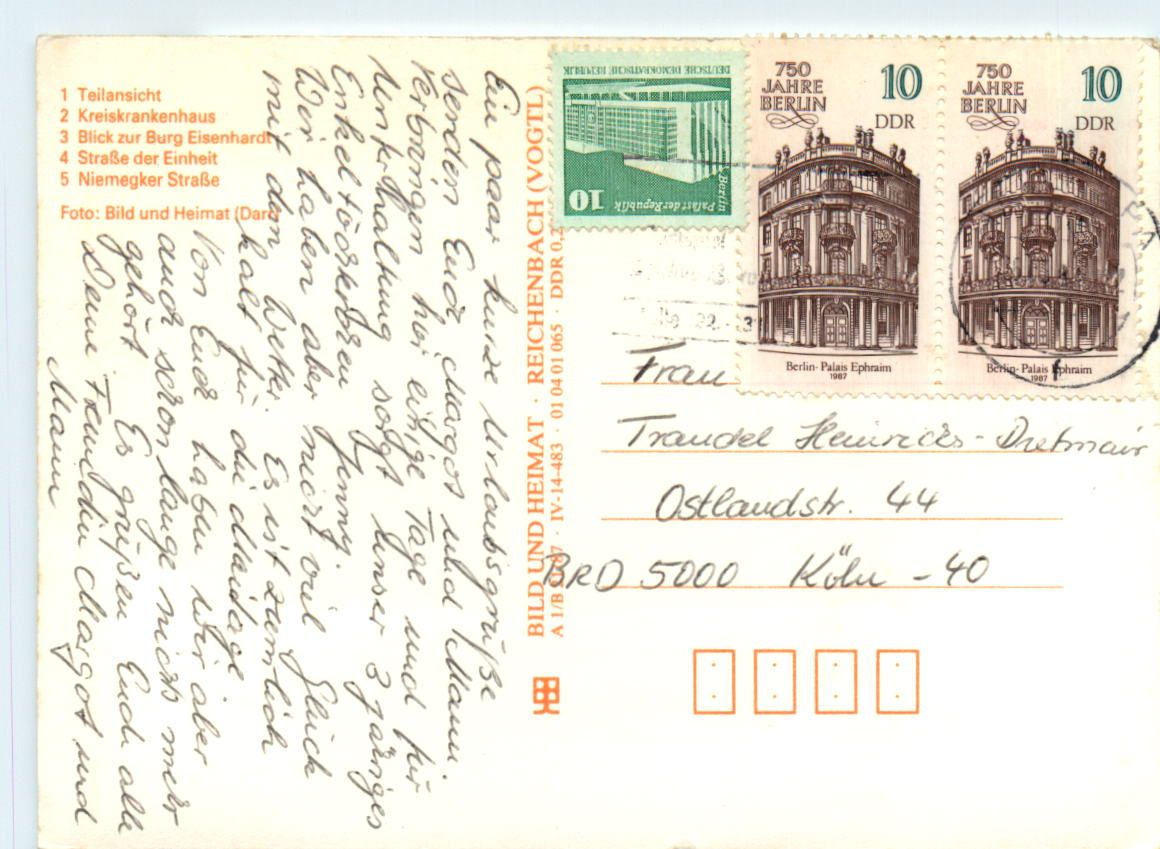 1 Teilansicht
2 Kreiskrankenhaus
3 Blick zur Burg Eisenhardt
4 Straße der Einheit
5 Niemegker Straße
Foto: Bild und Heimat (Darr)
Ein paar kurze Urlaubsgrüße
senden Euch Margot und Mann.
Verbringen hier einige Tage und für
Unterhaltung sorgt unser 3 jähriges
Enkeltöchterchen Jenny.
Wir haben aber nicht viel Glück
mit dem Wetter. Es ist ziemlich
kalt für die Maitage.
Von Euch haben wir aber
auch schon lange nichts mehr
gehört. Es grüßen Euch alle
Deine Freundin Margot und
Mann
BILD UND HEIMAT · REICHENBACH (VOGTL)
A 1/B IV-14-483 · 01 04 01 065 · DDR 0,2
DEUTSCHE DEMOKRATISCHE REPUBLIK
Berlin
Palast der Republik
10
750
JAHRE
BERLIN
10
DDR
Berlin-Palais Ephraim
1987
750
JAHRE
BERLIN
10
DDR
Berlin-Palais Ephraim
1987
Frau
Traudel Heinrichs-Dietmair
Ostlandstr. 44
BRD 5000 Köln - 40